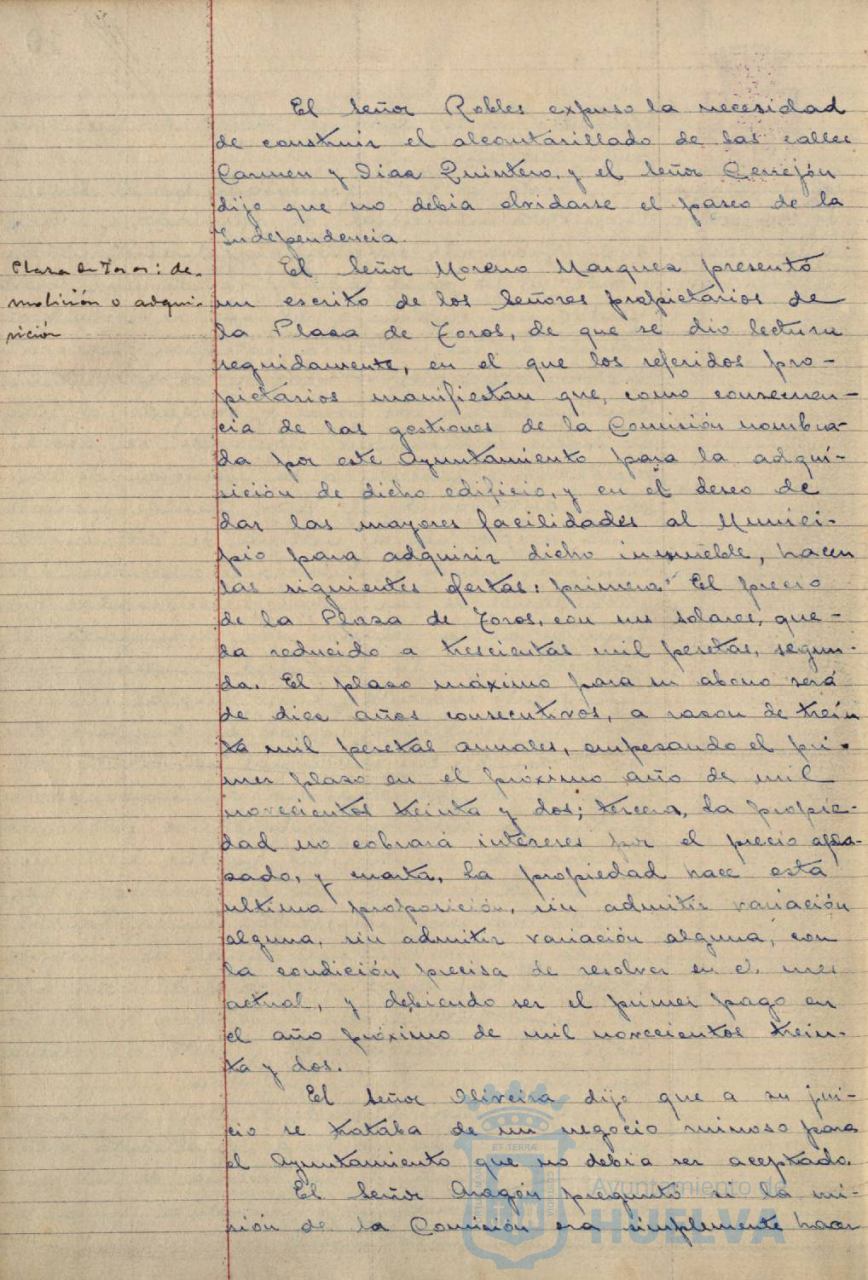 El Señor Robles expuso la necesidad
de construir el alcantarillado de las calles
Carmen y Diaz Quintero, y el Señor Cerrejón
dijo que no debia olvidarse el paseo de la
Independencia.
Plaza de Toros: de-
molición o adqui-
sición
El Señor Moreno Marquez presentó
un escrito de los Señores propietarios de
la Plaza de Toros, de que se dio lectura
seguidamente, en el que los referidos pro-
pietarios manifiestan que, como consecuen-
cia de las gestiones de la Comisión nombra-
da por este Ayuntamiento para la adqui-
sición de dicho edificio, y en el deseo de
dar las mayores facilidades al Munici-
pio para adquirir dicho inmueble, hacen
las siguientes ofertas: primera: El precio
de la Plaza de Toros, con sus solares, que-
da reducido a trescientas mil pesetas, segun-
da. El plazo máximo para su abono será
de diez años consecutivos, a razon de trein
ta mil pesetas anuales, empezando el pri-
mer plazo en el próximo año de mil
novecientos treinta y dos; tercera, La propie-
dad no cobrará intereses por el precio apla-
zado, y cuarta, La propiedad hace esta
ultima proposición, sin admitir variación
alguna, sin admitir variación alguna, con
la condición precisa de resolver en el mes
actual, y debiendo ser el primer pago en
el año próximo de mil novecientos trein-
ta y dos.
El Señor Oliveira dijo que a su jui-
cio se trataba de un negocio ruinoso para
el Ayuntamiento que no debia ser aceptado.
El Señor Aragón preguntó si la mi-
sión de la Comisión era simplemente hacer
ET-TERRÆ
Ayuntamiento de
HUELVA